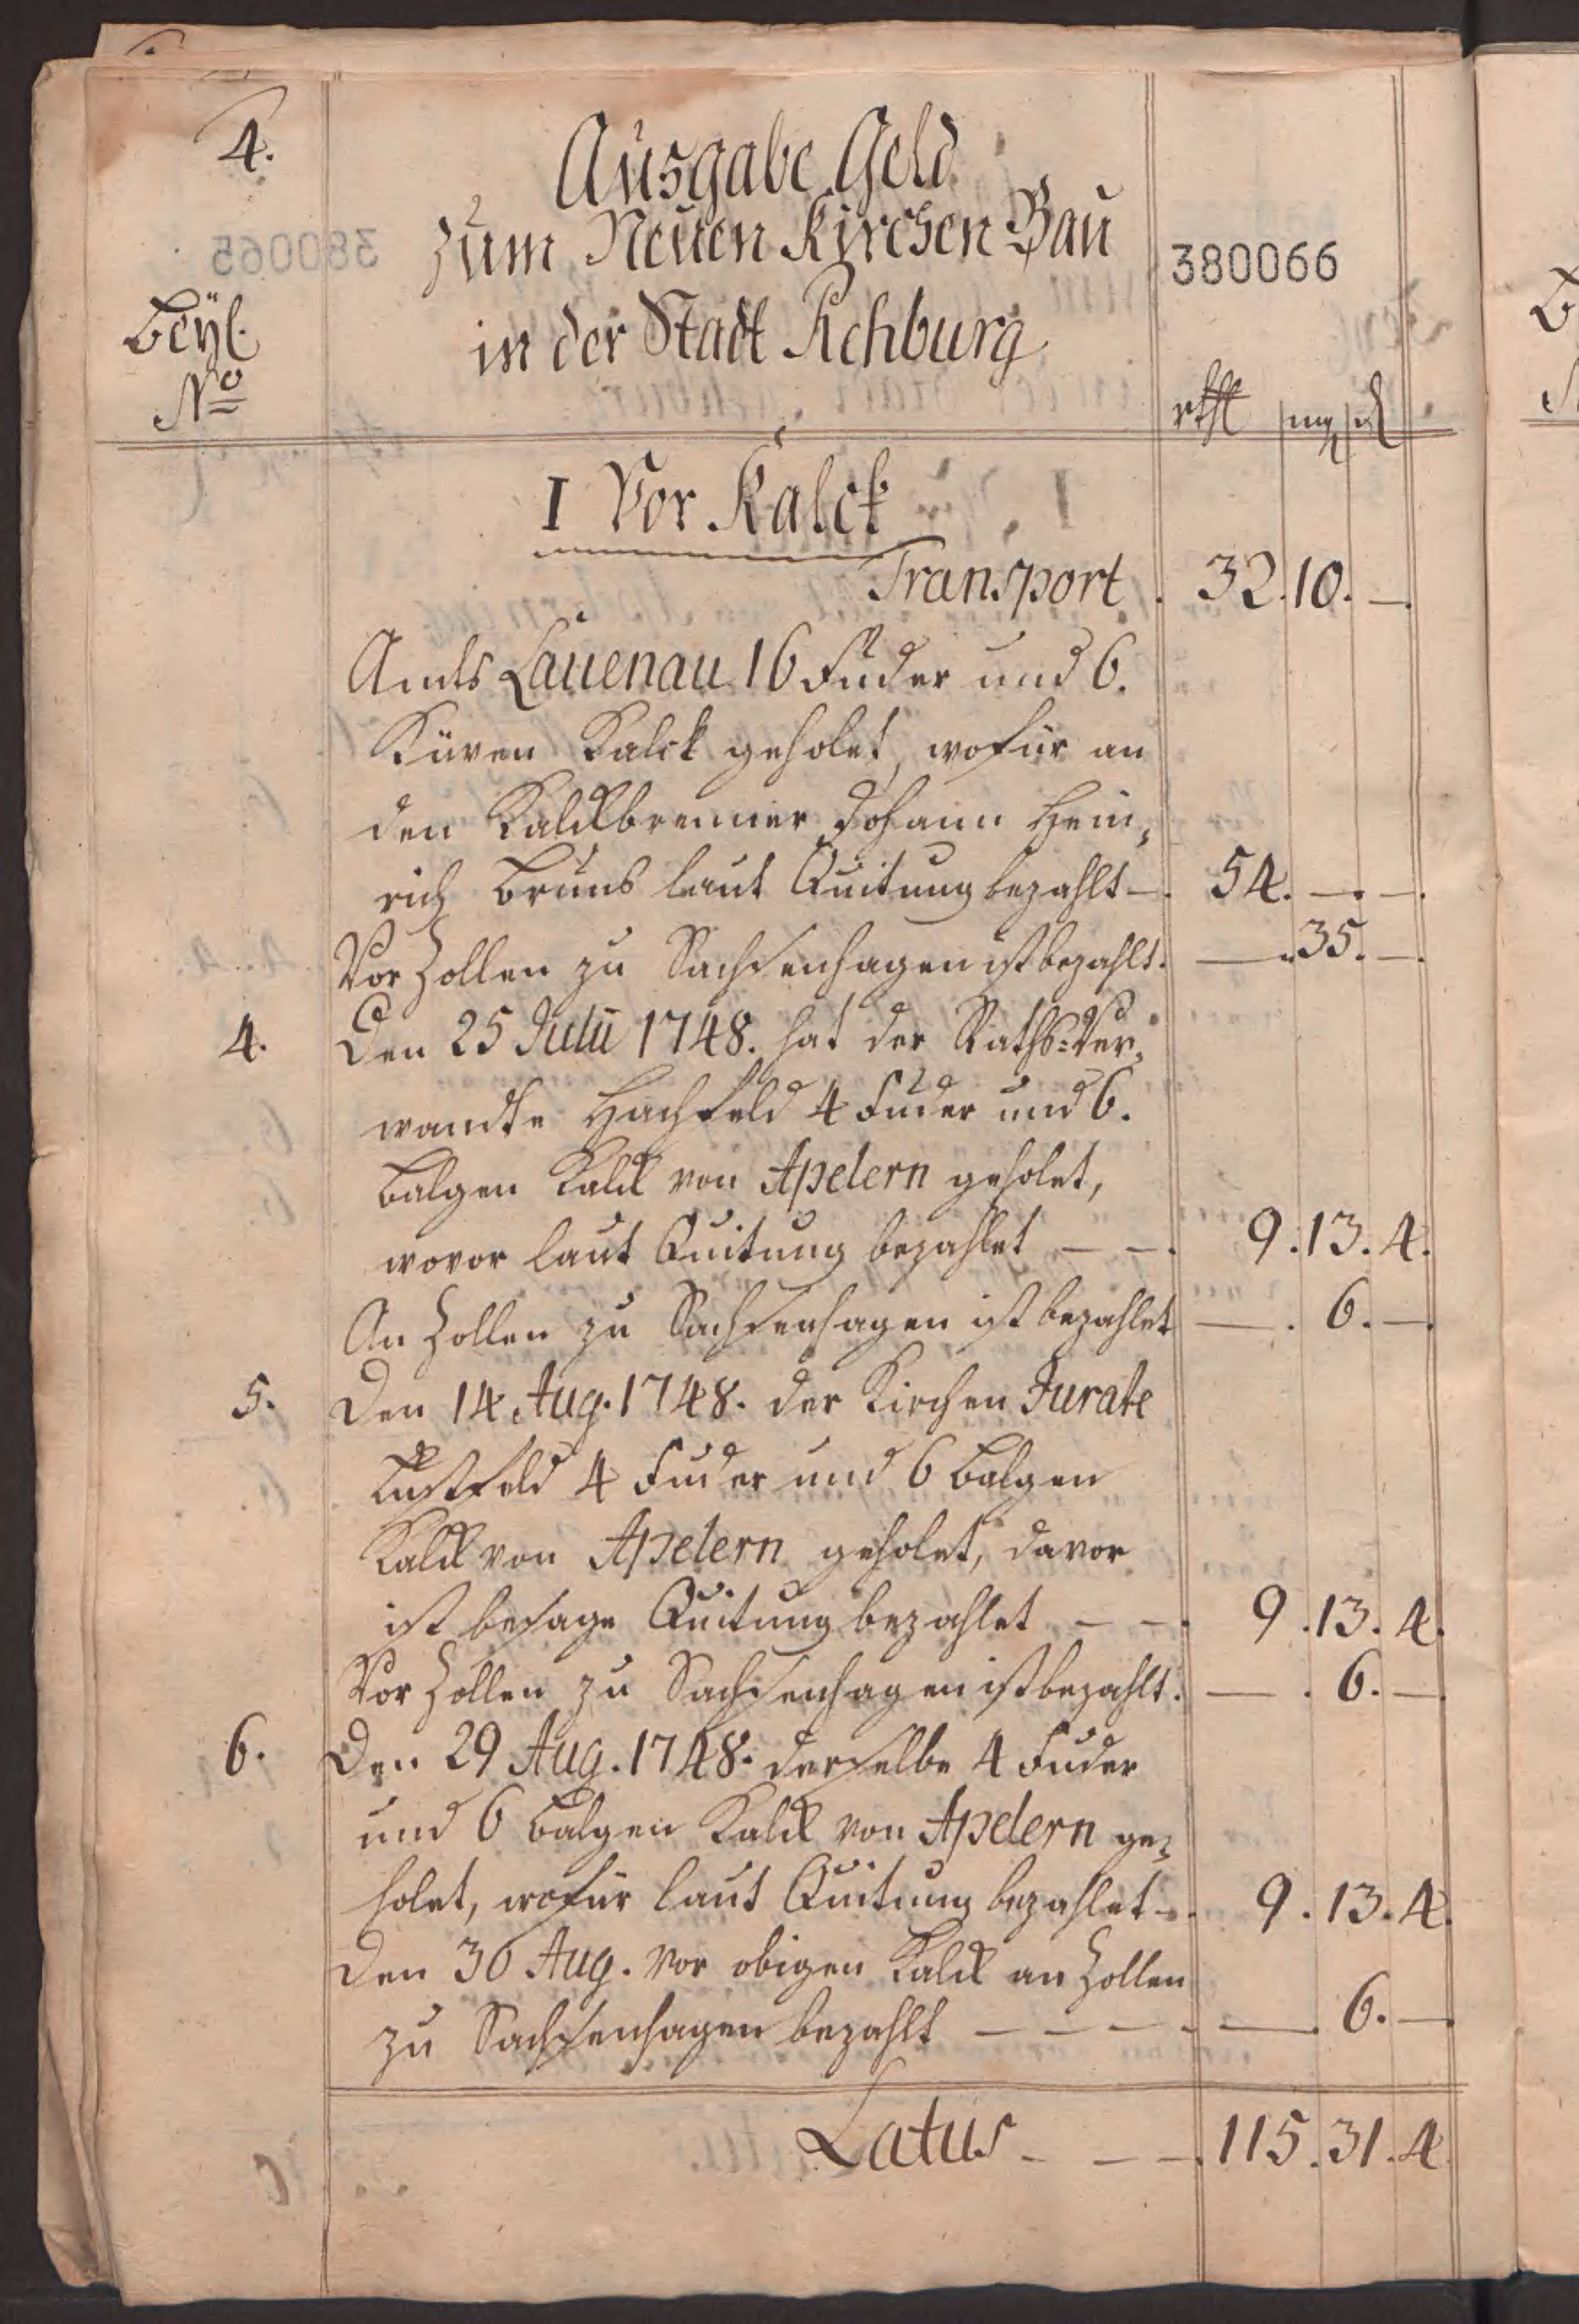 4.
Ausgabe Geld
zum Neuen Kirchen Bau
in der Stadt Rehburg
380065
380066
Beyl.
No
rthl mg d
I Vor Kalck
Transport. 32. 10. —.
Amts Lauenau 16 Fuder und 6.
Küven Kalck geholet, wofür an
den Kalckbrenner Johann Hein,
rich Bruns laut Quitung bezahlt —. 54. —. —.
Vor Zollen zu Sachsenhagen ist bezahlt. —. 35. —.
4. Den 25 Julii 1748. hat der Raths-Ver,
wandte Hachfeld 4 Fuder und 6.
Balgen Kalck von Apelern geholet,
wovor laut Quitung bezahlet — —. 9. 13. 4.
An Zollen zu Sachsenhagen ist bezahlet —. 6. —.
5. Den 14 Aug. 1748. der Kirchen Jurate
Lustfeld 4 Fuder und 6 Balgen
Kalck von Apelern geholet, davor
ist besage Quitung bezahlet — —. 9. 13. 4.
Vor Zollen zu Sachsenhagen ist bezahlt. —. 6. —.
6. Den 29 Aug. 1748. derselbe 4 Fuder
und 6 Balgen Kalck von Apelern ge,
holet, wofür laut Quitung bezahlet —. 9. 13. 4.
Den 30 Aug. vor obigen Kalck an Zollen
zu Sachsenhagen bezahlt — — — —. —. 6. —.
Latus — — —. 115. 31. 4